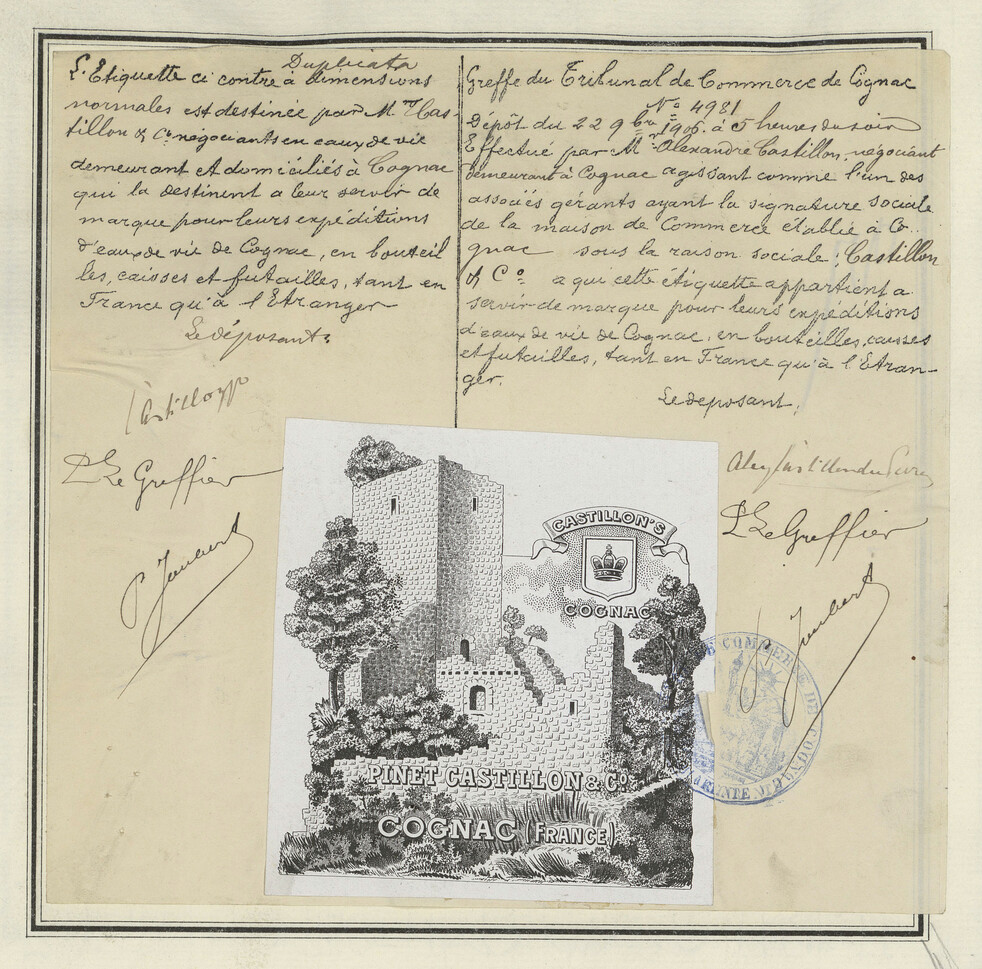 Duplicata
L'Etiquette ci contre à dimensions
normales est destinée par M.rs Cas-
tillon & Cº négociants en eaux de vie
demeurant et domiciliés à Cognac
qui la destinent a leur servir de
marque pour leurs expéditions
d'eaux de vie de Cognac, en bouteil
les, caisses et futailles, tant en
France qu'à l'Etranger
Le déposant:
Castillon
Le Greffier
P. Jaubert
Greffe du Tribunal de Commerce de Cognac
Nº 4981
Dépôt du 22 9bre 1906. à 5 heures du soir
Effectué par Mr Alexandre Castillon, négociant
demeurant à Cognac agissant comme l'un des
associés gérants ayant la signature sociale
de la maison de Commerce établie à Co..
gnac sous la raison sociale: Castillon
& Cº. a qui cette étiquette appartient a
servir de marque pour leurs expéditions
d'eaux de vie de Cognac, en bouteilles, caisses
et futailles, tant en France qu'à l'Etran-
ger.
Le deposant:
Alex Castillon du
Le Greffier
Jaubert
CASTILLON'S
COGNAC
PINET CASTILLON & Cº.
COGNAC (FRANCE)
DE COMMERCE DE COGNAC